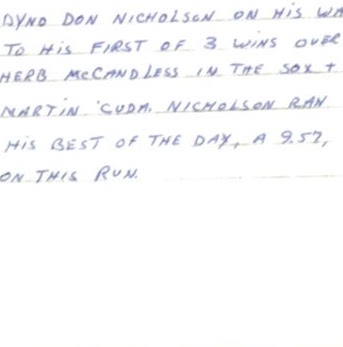 DYNO DON NICHOLSON ON HIS WA
TO HIS FIRST OF 3 WINS OVER
HERB McCANDLESS IN THE SOX +
MARTIN 'CUDA. NICHOLSON RAN
HIS BEST OF THE DAY, A 9.57,
ON THIS RUN.